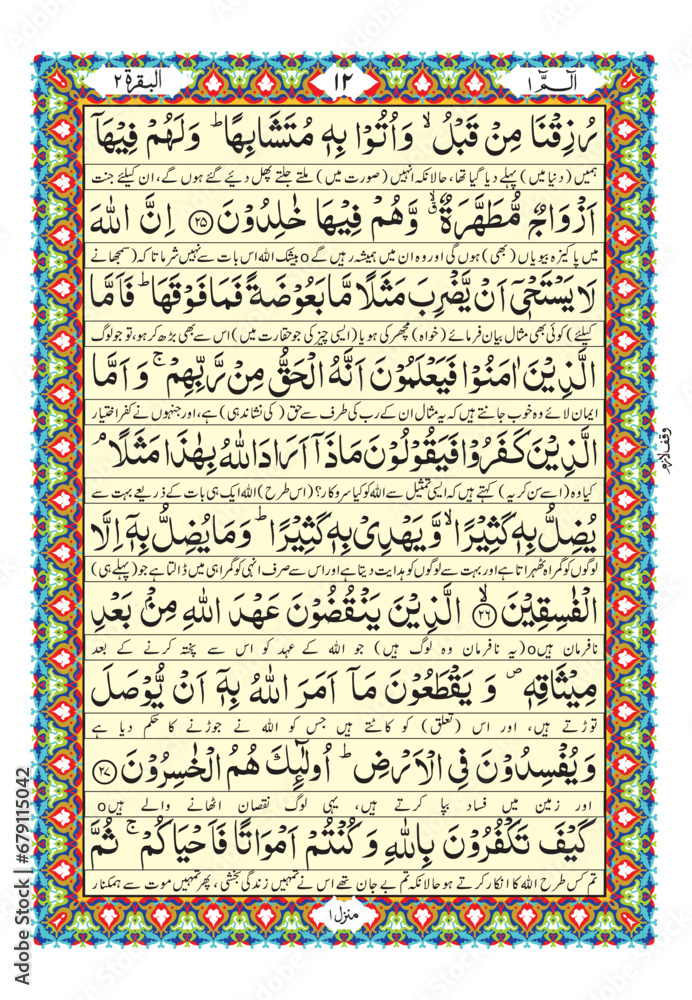 الٓمّٓ ١
١٢
البقرة ٢
رُزِقْنَا مِنْ قَبْلُ ۙ وَاُتُوْا بِهٖ مُتَشَابِهًا ؕ وَلَهُمْ فِيْهَاۤ
ہمیں (دنیا میں) پہلے دیا گیا تھا، حالانکہ انہیں (صورت میں) ملتے جلتے پھل دیئے گئے ہوں گے، ان کیلئے جنت
اَزْوَاجٌ مُّطَهَّرَةٌ ۙۗ وَّهُمْ فِيْهَا خٰلِدُوْنَ ۝٢٥ اِنَّ اللّٰهَ
میں پاکیزہ بیویاں (بھی) ہوں گی اور وہ ان میں ہمیشہ رہیں گے o بیشک اللہ اس بات سے نہیں شرماتا کہ (سمجھانے
لَا يَسْتَحْيٖۤ اَنْ يَّضْرِبَ مَثَلًا مَّا بَعُوْضَةً فَمَا فَوْقَهَا ؕ فَاَمَّا
کیلئے) کوئی بھی مثال بیان فرمائے (خواہ) مچھر کی ہو یا (ایسی چیز کی جو حقارت میں) اس سے بھی بڑھ کر ہو، تو جو لوگ
الَّذِيْنَ اٰمَنُوْا فَيَعْلَمُوْنَ اَنَّهُ الْحَقُّ مِنْ رَّبِّهِمْ ۚ وَ اَمَّا
ایمان لائے وہ خوب جانتے ہیں کہ یہ مثال ان کے رب کی طرف سے حق (کی نشاندہی) ہے، اور جنہوں نے کفر اختیار
الَّذِيْنَ كَفَرُوْا فَيَقُوْلُوْنَ مَاذَاۤ اَرَادَ اللّٰهُ بِهٰذَا مَثَلًا ۘ
وقف لازم
کیا وہ (اسے سن کر یہ) کہتے ہیں کہ ایسی تمثیل سے اللہ کو کیا سروکار؟ (اس طرح) اللہ ایک ہی بات کے ذریعے بہت سے
يُضِلُّ بِهٖ كَثِيْرًا ۙ وَّيَهْدِيْ بِهٖ كَثِيْرًا ؕ وَمَا يُضِلُّ بِهٖۤ اِلَّا
لوگوں کو گمراہ ٹھہراتا ہے اور بہت سے لوگوں کو ہدایت دیتا ہے اور اس سے صرف انہی کو گمراہی میں ڈالتا ہے جو (پہلے ہی)
الْفٰسِقِيْنَ ۙ۝٢٦ الَّذِيْنَ يَنْقُضُوْنَ عَهْدَ اللّٰهِ مِنْۢ بَعْدِ
نافرمان ہیں o (یہ نافرمان وہ لوگ ہیں) جو اللہ کے عہد کو اس سے پختہ کرنے کے بعد
مِيْثَاقِهٖ ۪ وَ يَقْطَعُوْنَ مَاۤ اَمَرَ اللّٰهُ بِهٖۤ اَنْ يُّوْصَلَ
توڑتے ہیں، اور اس (تعلق) کو کاٹتے ہیں جس کو اللہ نے جوڑنے کا حکم دیا ہے
وَ يُفْسِدُوْنَ فِي الْاَرْضِ ؕ اُولٰٓئِكَ هُمُ الْخٰسِرُوْنَ ۝٢٧
اور زمین میں فساد بپا کرتے ہیں، یہی لوگ نقصان اٹھانے والے ہیں o
كَيْفَ تَكْفُرُوْنَ بِاللّٰهِ وَ كُنْتُمْ اَمْوَاتًا فَاَحْيَاكُمْ ۚ ثُمَّ
تم کس طرح اللہ کا انکار کرتے ہو حالانکہ تم بے جان تھے اس نے تمہیں زندگی بخشی، پھر تمہیں موت سے ہمکنار
منزل ١
Adobe Stock | #679115042